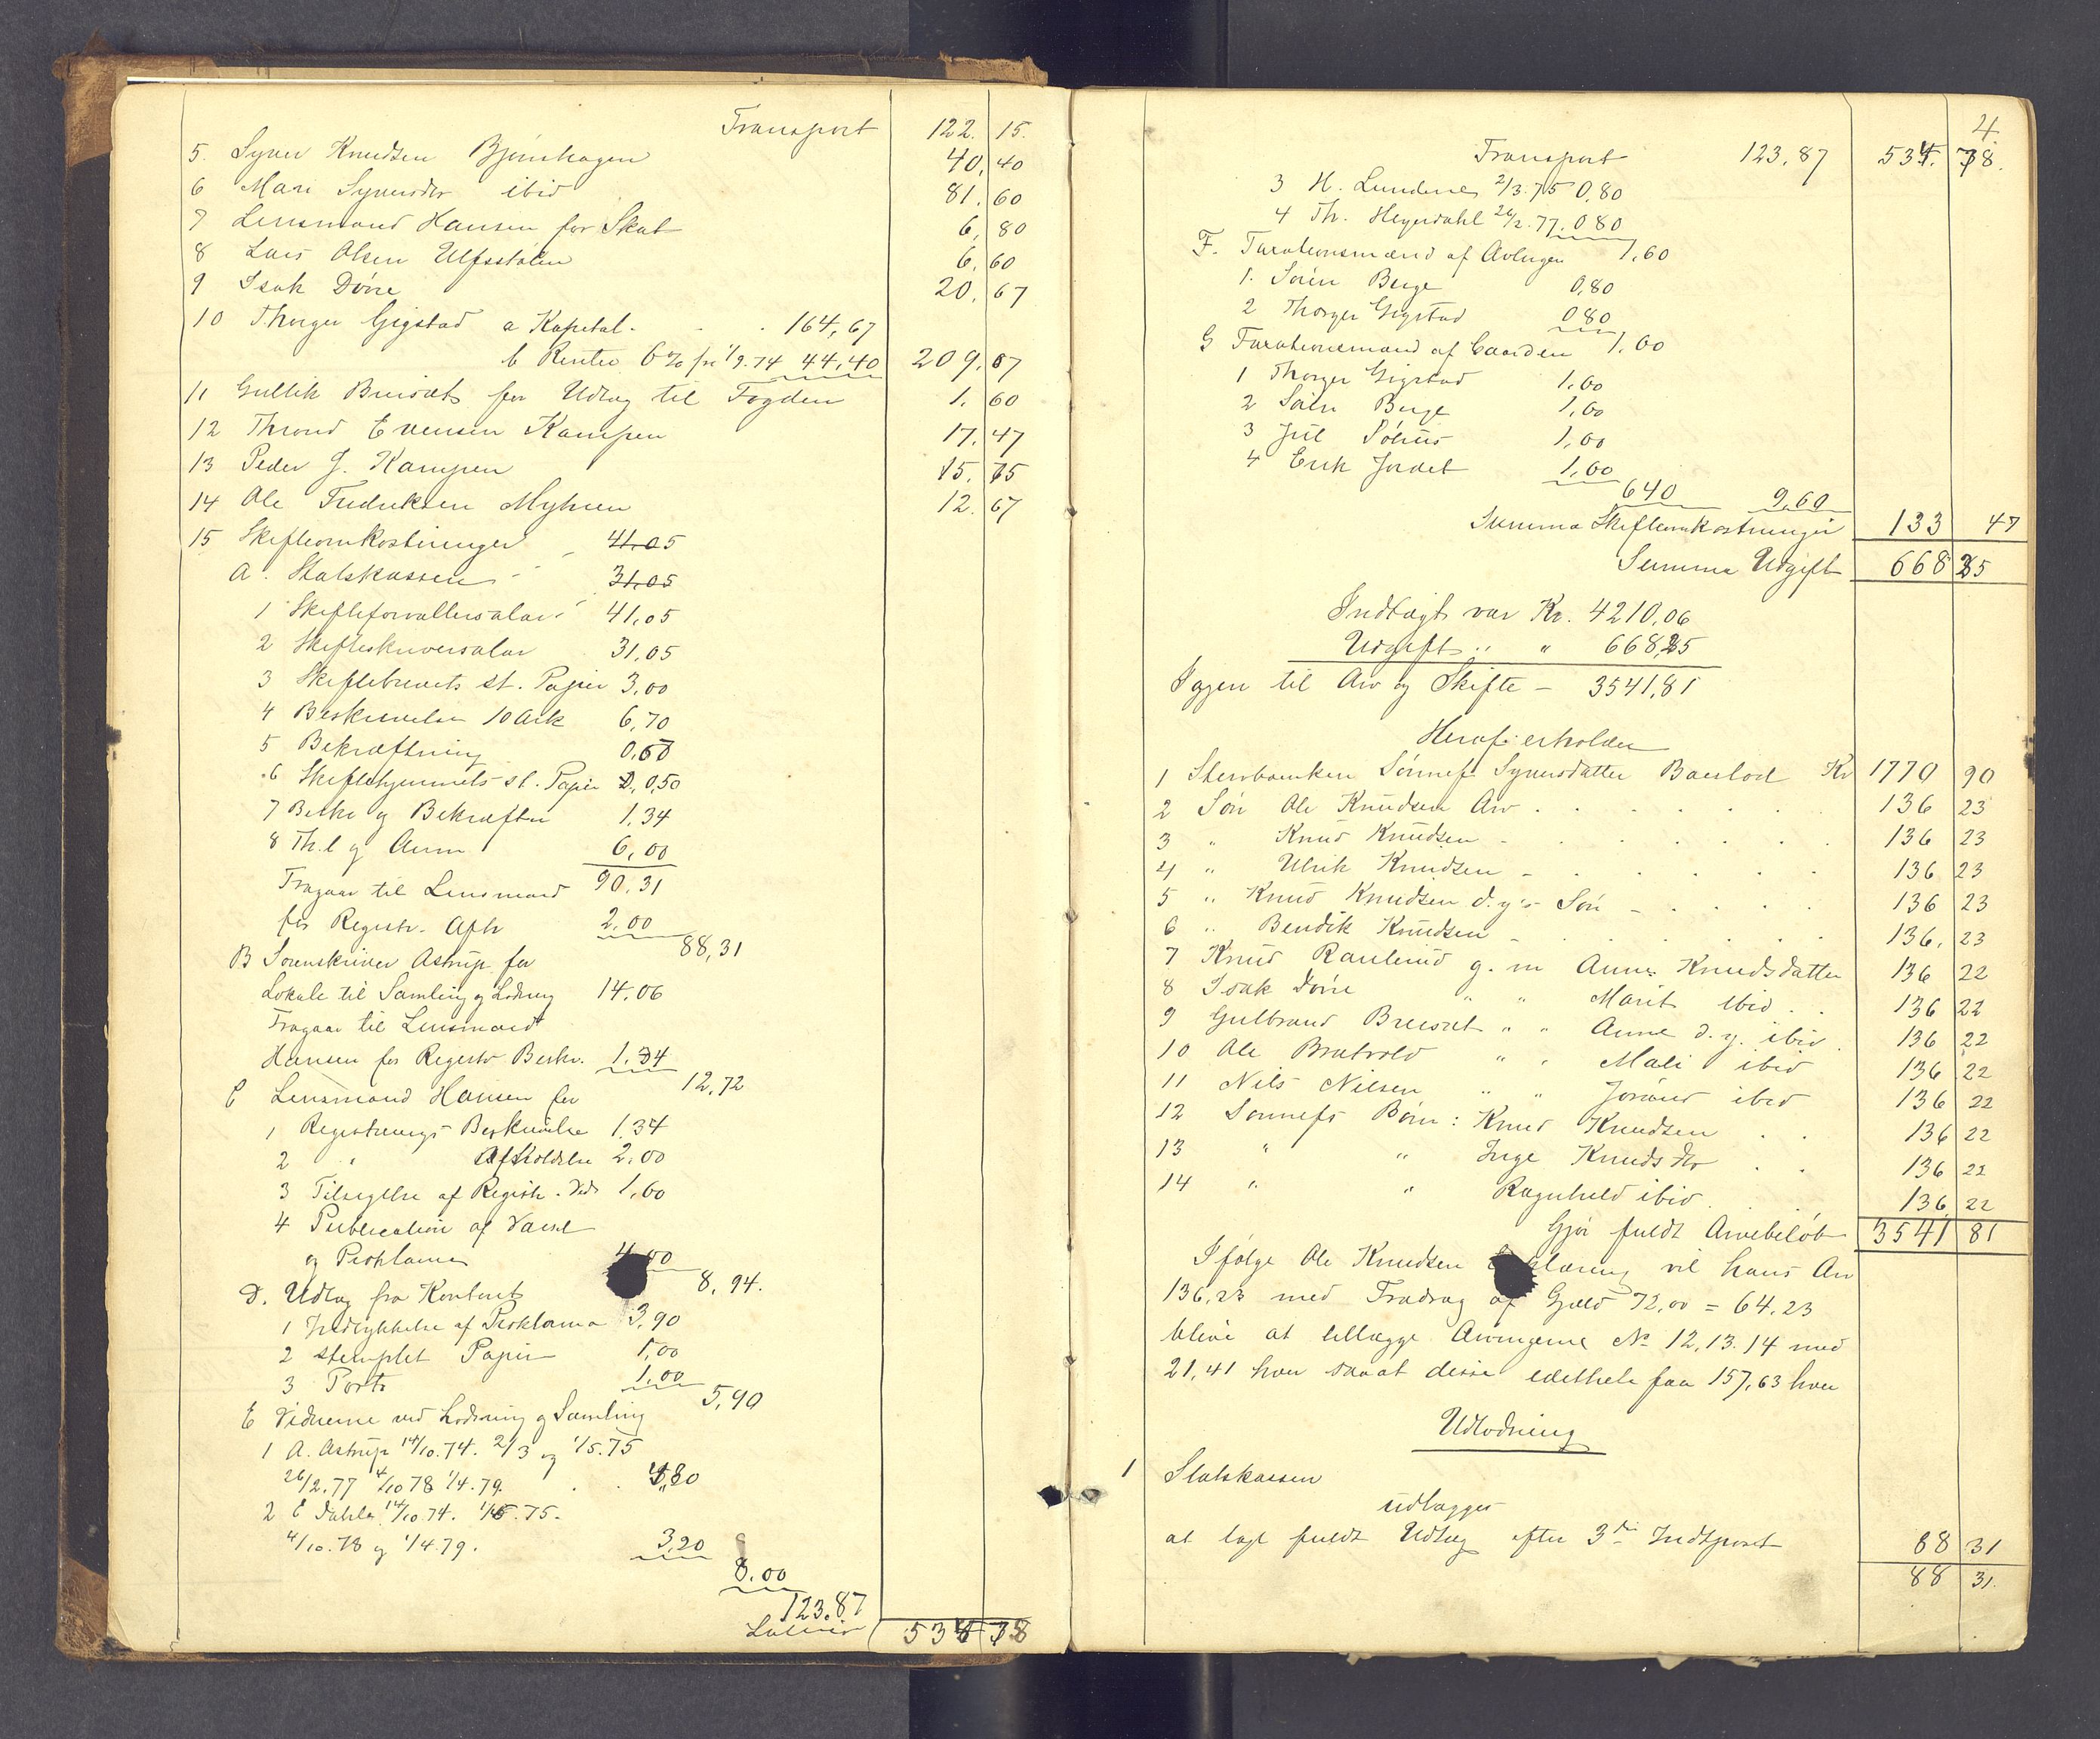 Transport 122. 15.
5. Syver Knudsen Bjørnhagen 40, 40
6 Mari Syversdr ibid 81. 60
7 Lensmand Hansen for Skat 6, 80
8 Lars Olsen Ulfsstølen 6. 60
9 Isak Døvre 20, 67
10 Thorger Gigstad a Kapital . . . 164,67
b Renter 6 % fra 1/9. 74 44,40 209, 07
11 Gullik Bruset for Udlæg til Fogden 1. 60
12 Thrond Evensen Kampen 17. 47
13 Peder J. Kampen 15. 75
14 Ole Fredriksen Myhren 12. 67
15 Skifteomkostninger 41.05
A. Statskassen 31.05
1 Skifteforvaltersalær 41,05
2 Skifteskriversalær 31,05
3 Skiftebrevets st. Papir 3,00
4 Beskrivelse 10 Ark 6,70
5 Bekræftning 0,67
6 Skiftehjemmels st. Papir 0,50
7 Beskr og Bekræftn 1.34
8 Th.l og Anm 6,00
90.31
Fragaar til Lensmand
for Registr. Afh 2.00
88,31
B Sorenskriver Astrup for
Lokale til Samling og Lodning 14.06
Fragaar til Lensmand
Hansen for Registr Beskr. 1.34
12,72
C Lensmand Hansen for
1 Registrerings Beskrivelse 1.34
2 " Afholdelse 2.00
3 Tilsigelse af Registr. Vidn 1,60
4 Publication af Varsel
og Proklama 4,00
8,94.
D. Udlæg fra Kontoret
1 Indrykkelse af Proklama 3,90
2 stemplet Papir 1,00
3 Porto 1.00
5,90
E Vidnerne ved Lodning og Samling
1 A. Astrup 14/10.74. 2/3 og 1/5.75
26/2.77 4/10 78 1/4.79. . . 4,80
2 E Dahle 14/10.74. 1/5.75.
4/10.78 og 1/4 79. 3,20
8.00
123.87
Lateris 534 78
4.
Transport 123,87 534. 78.
3 H. Lundene 2/3.75 0,80
4 Th. Heyerdahl 26/2.77. 0 80
F. Taxationsmænd af Avlingen 1,60
1. Søren Berge 0,80
2 Thorger Gigstad 0 80
G Taxationsmænd af Gaarden 1,60
1 Thorger Gigstad 1.60
2 Søren Berge 1,60
3 Jul 1,60
4 Erik Jordet 1,60
6 40 9,60
Summa Skifteomkostninger 133 47
Summa Udgift 668 25
Indtægt var Kr. 4210,06
Udgift " " 668,25
Igjen til Arv og Skifte – 3541,81
Heraf erholder
1 Sterboenken Sønnef Syversdatter Boeslod Kr 1770 90
2 Søn Ole Knudsen Arv . . . . . 136 23
3 " Knud Knudsen – . . . . . 136 23
4 " Ulrik Knudsen – . . . . . 136 23
5 " Knud Knudsen d.y's Søn – . . . . 136 23
6 " Bendik Knudsen – . . . . . 136, 23
7 Knud Ranlund g. m Anne Knudsdatter 136 22
8 Isak Døvre " " Marit ibid . . 136 22
9 Gulbrand Bruset " " Anne d.y. ibid . 136 22
10 Ole Bratvold " " Mali ibid 136 22
11 Nils Nilsen " " Jorand ibid 136 22
12 Sønnefs Børn: Knud Knudsen . . 136 22
13 " " Inge Knudsdtr . . 136 22
14 " " Ragnhild ibid . . 136. 22
Gjør fuldt Arvebeløb 3541 81
Ifølge Ole Knudsen Erklæring vil hans Arv
136,23 med Fradrag af Gjæld 72,00 = 64,23
blive at tillægge Arvingerne No 12, 13. 14 med
21,41 hver saaat disse erholde paa 157,63 hver
Udlodning
1 Statskassen
udlægges
at tage fuldt Udlæg efter 3die Indtpost 88 31
88 31.